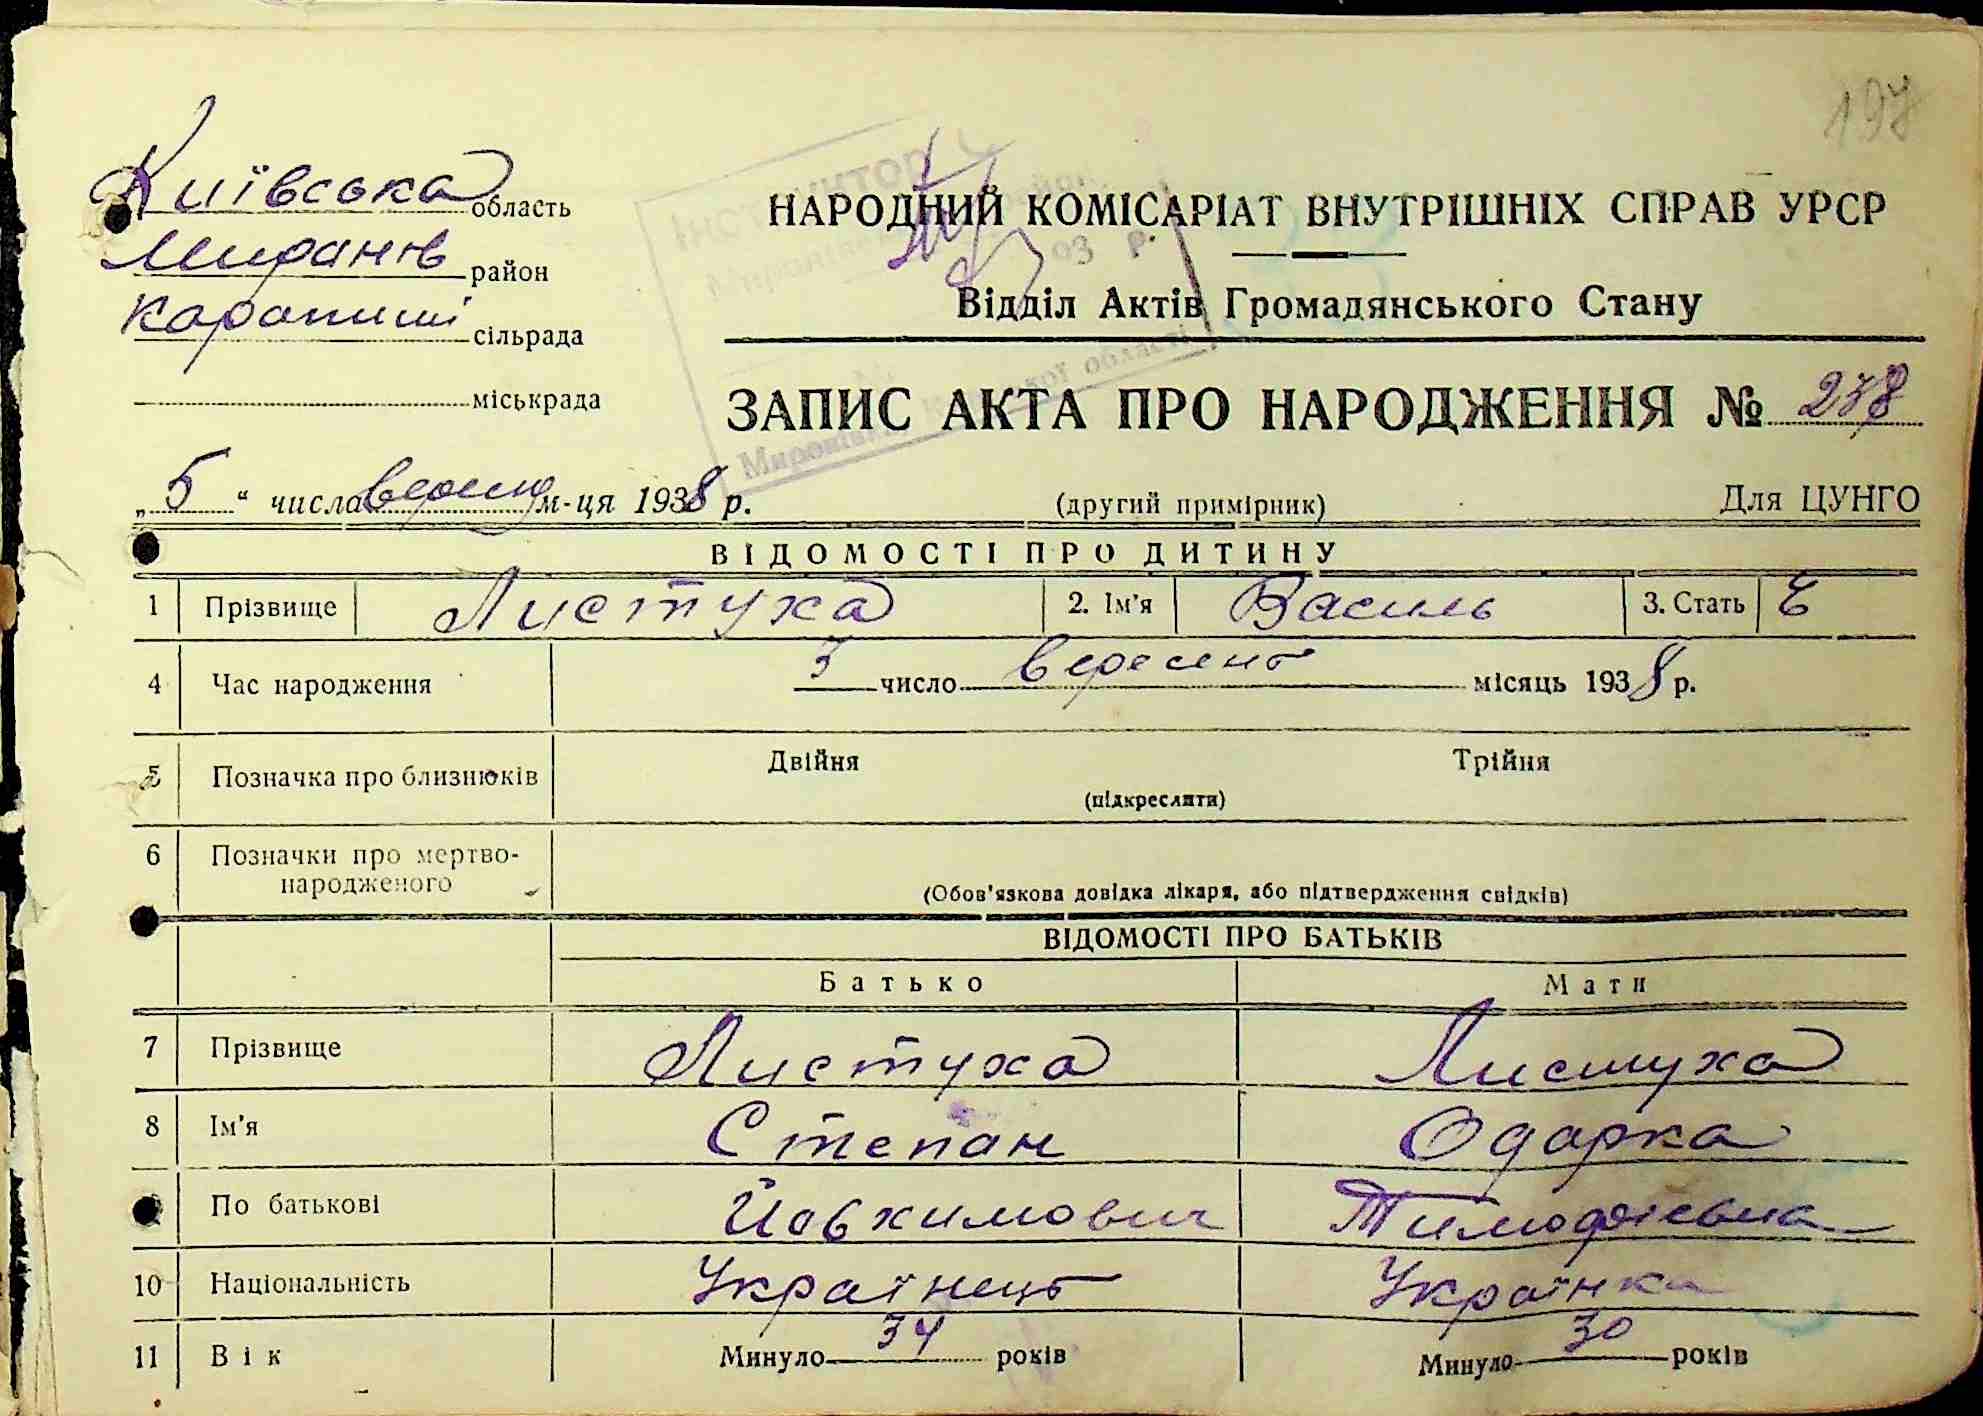 197
Київська область
НАРОДНИЙ КОМІСАРІАТ ВНУТРІШНІХ СПРАВ УРСР
район
Відділ Актів Громадянського Стану
сільрада
міськрада
ЗАПИС АКТА ПРО НАРОДЖЕННЯ № 278
„5“ числа м-ця 1938 р.
(другий примірник)
Для ЦУНГО
ВІДОМОСТІ ПРО ДИТИНУ
1 Прізвище Листуха 2. Ім'я Василь 3. Стать Ч
4 Час народження 3 число вересень місяць 1938 р.
5 Позначка про близнюків Двійня Трійня
(підкреслити)
6 Позначки про мертво-
народженого
(Обов'язкова довідка лікаря, або підтвердження свідків)
ВІДОМОСТІ ПРО БАТЬКІВ
Батько Мати
7 Прізвище Листуха Листуха
8 Ім'я Степан Одарка
9 По батькові Йовхимович Тимофієвна
10 Національність Українець Українка
11 Вік Минуло 34 років Минуло 30 років